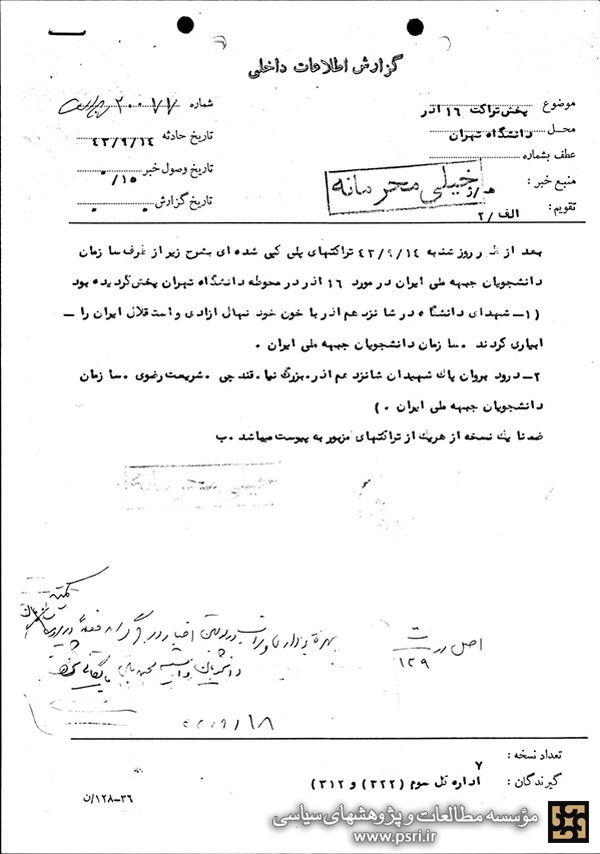 گزارش اطلاعات داخلی
موضوع پخش تراکت ۱۶ اذر
محل دانشگاه تهران
عطف بشماره
منبع خبر :
تقویم : الف /۲
شماره ۲۰۰۷۷
تاریخ حادثه ۴۳/۹/۱۴
تاریخ وصول خبر ۱۵/
تاریخ گزارش
خیلی محرمانه
بعد از ظهر روز شنبه ۴۳/۹/۱۴ تراکتهای پلی کپی شده ای بشرح زیر از طرف سازمان
دانشجویان جبهه ملی ایران در مورد ۱۶ اذر در محوطه دانشگاه تهران پخش گردیده بود
(۱– شهدای دانشگاه در شانزدهم اذر با خون خود نهال ازادی و استقلال ایران را –
ابیاری کردند . سازمان دانشجویان جبهه ملی ایران .
۲– درود بروان پاک شهیدان شانزدهم اذر . بزرگ نیا . قندچی . شریعت رضوی . سازمان
دانشجویان جبهه ملی ایران . )
ضمنا یک نسخه از هریک از تراکتهای مزبور به پیوست میباشد . ب
اصل در ت
۱۲۹
تعداد نسخه : ۷
گیرندگان : اداره کل سوم (۳۲۲) و (۳۱۲)
۳۶–۱۲۸/ن
مؤسسه مطالعات و پژوهشهای سیاسی
www.psri.ir